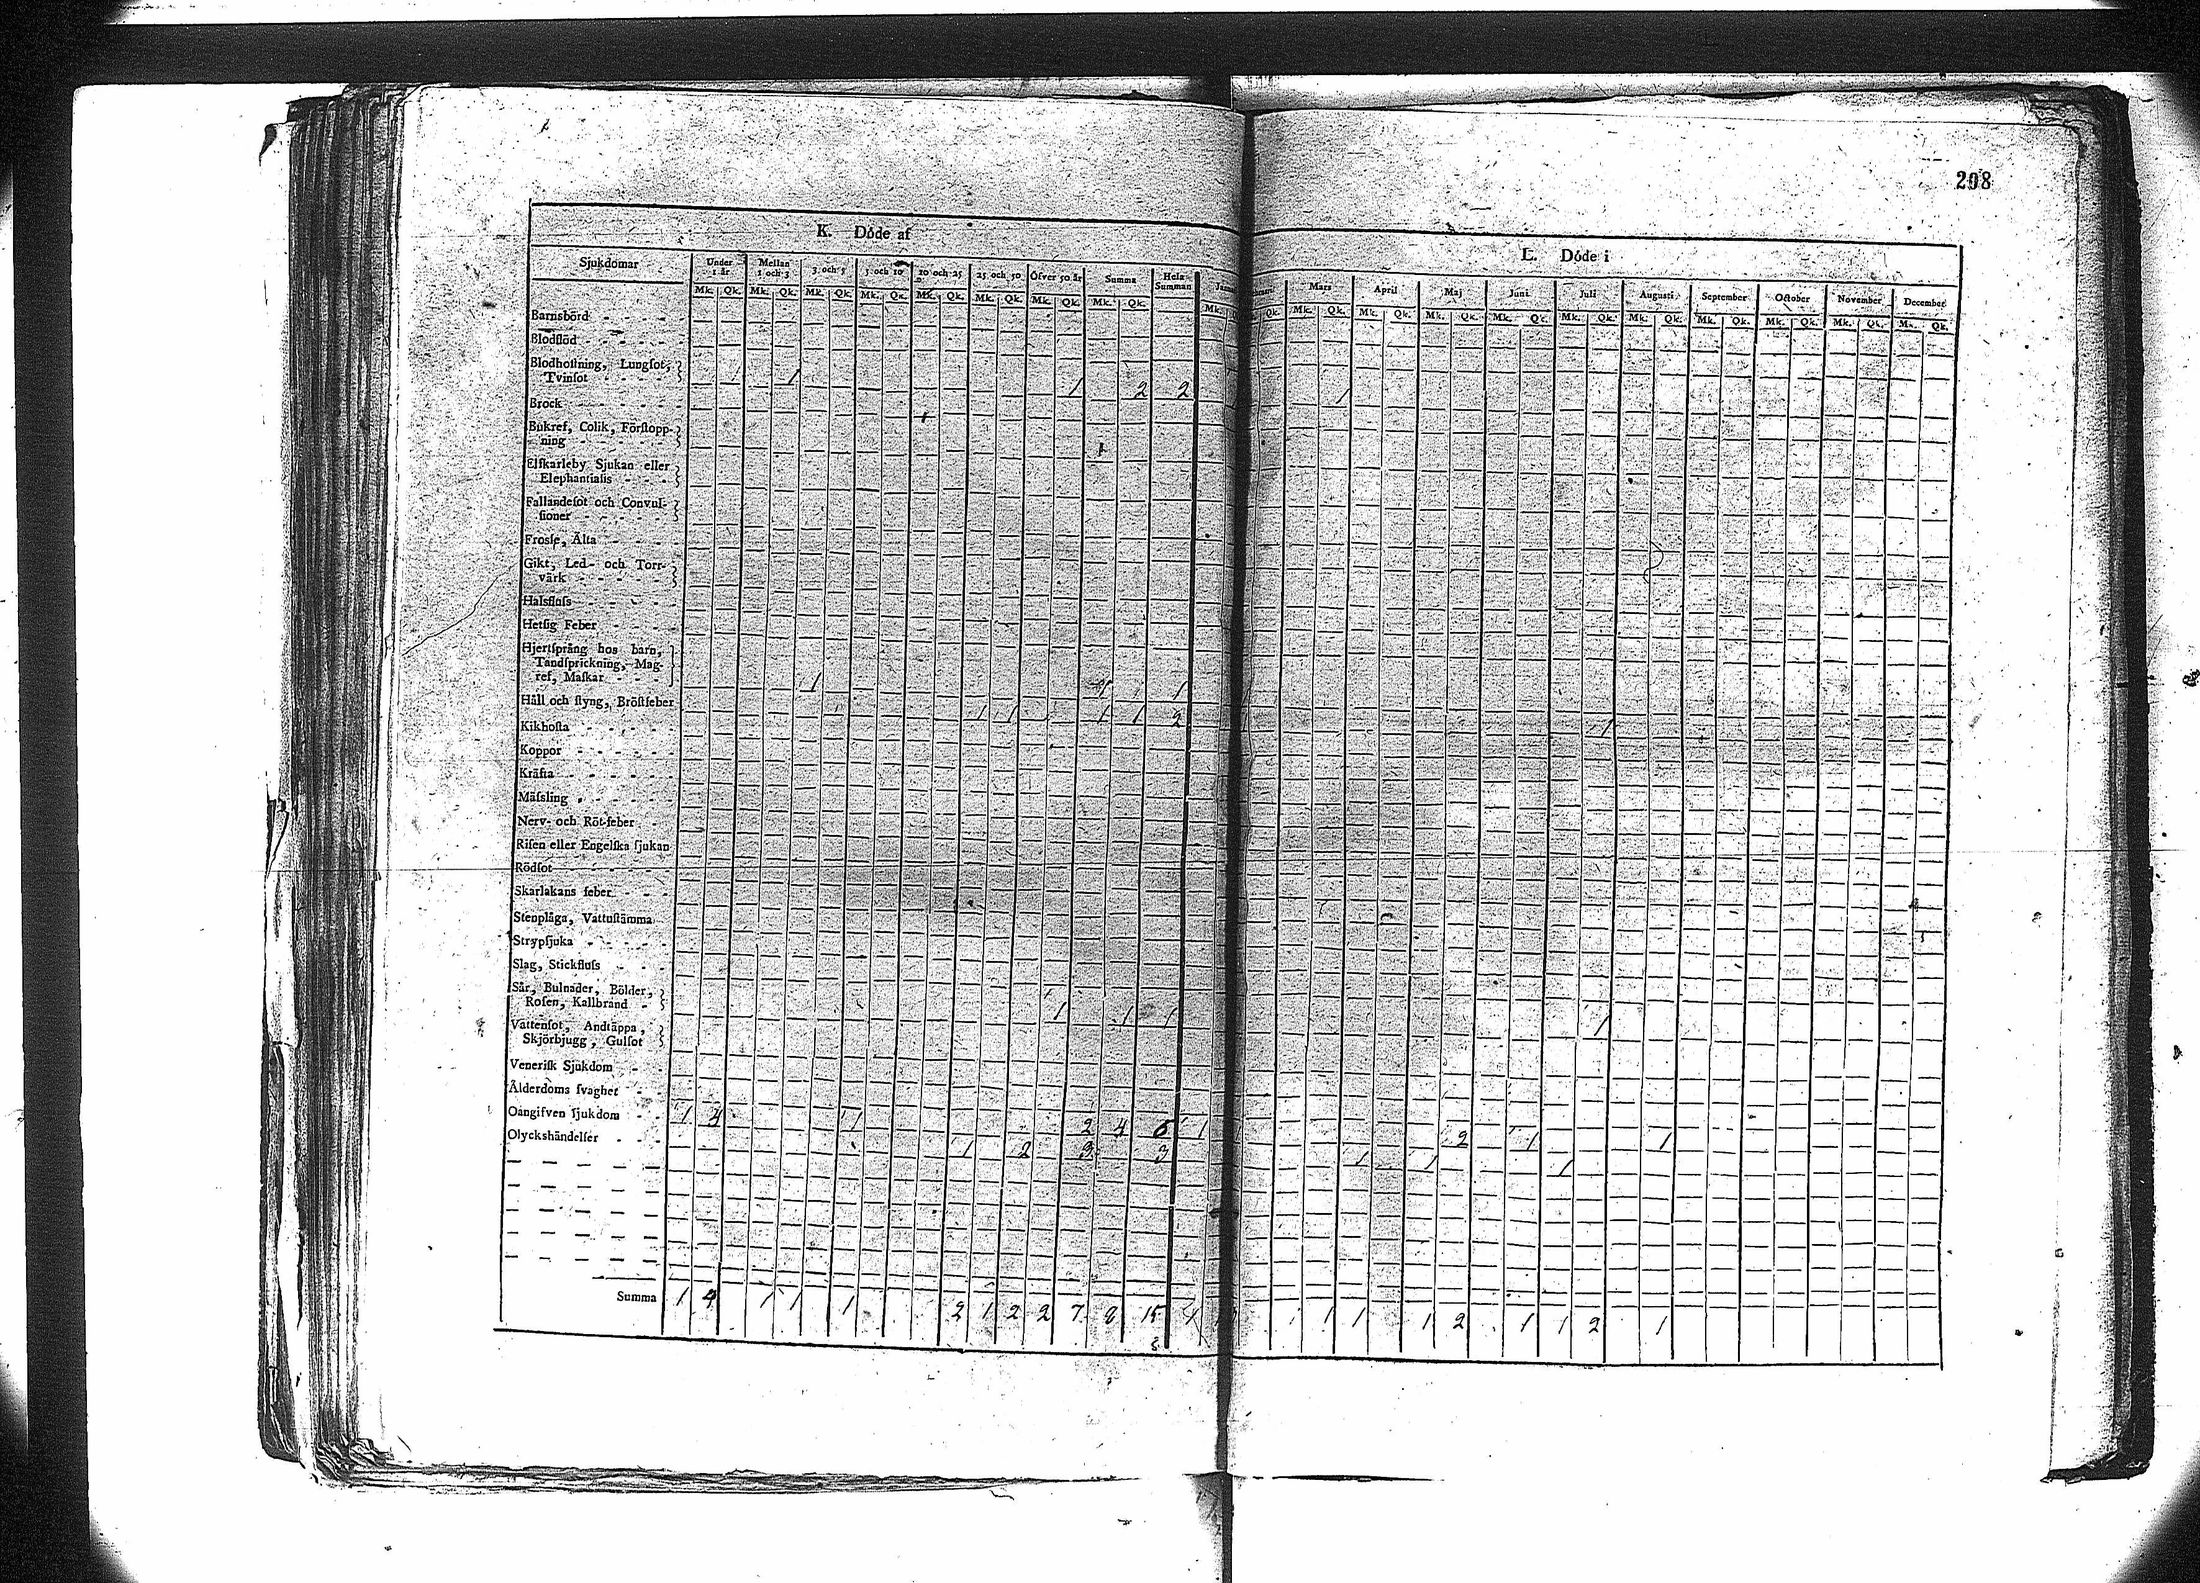 208
K. Döde af
L. Döde i
Sjukdomar Under 1 år Mellan 1 och 3 3 och 5 5 och 10 10 och 25 25 och 50 Öfver 50 år Summa Hela Summan
Mars April Maj Juni Juli Augusti September October November December
Mk. Qk. Mk. Qk. Mk. Qk. Mk. Qk. Mk. Qk. Mk. Qk. Mk. Qk. Mk. Qk.
Mk. Qk. Mk. Qk. Mk. Qk. Mk. Qk. Mk. Qk. Mk. Qk. Mk. Qk. Mk. Qk. Mk. Qk. Mk. Qk. Mk. Qk.
Barnsbörd
Blodflöd
Blodhoſtning, Lungſot,
Tvinſot 1 1 2 2 1
Brock
Bukref, Colik, Förſtopp-
ning
Elfkarleby Sjukan eller
Elephantiaſis
Fallandeſot och Convul-
ſioner
Froſſe, Älta
Gikt, Led- och Torr-
värk
Halsfluſs
Hetſig Feber
Hjertſprång hos barn,
Tandſprickning, Mag-
ref, Maſkar 1 1 1
Håll och ſtyng, Bröſtfeber 1 1 1 1 2 1
Kikhoſta
Koppor
Kräfta
Mäſsling
Nerv- och Röt-feber
Riſen eller Engelſka ſjukan
Rödſot
Skarlakans feber
Stenplåga, Vattuſtämma
Strypſjuka
Slag, Stickfluſs
Sår, Bulnader, Bölder,
Roſen, Kallbrand 1 1 1 1
Vattenſot, Andtäppa,
Skjörbjugg, Gulſot
Veneriſk Sjukdom
Ålderdoms ſvaghet
Oangifven ſjukdom 1 4 1 2 4 6 1 2 1 1
Olyckshändelſer 1 2 3 3 1 1 1
Summa 1 4 1 1 1 2 1 2 2 7 8 15 1 1 1 2 1 1 2 1